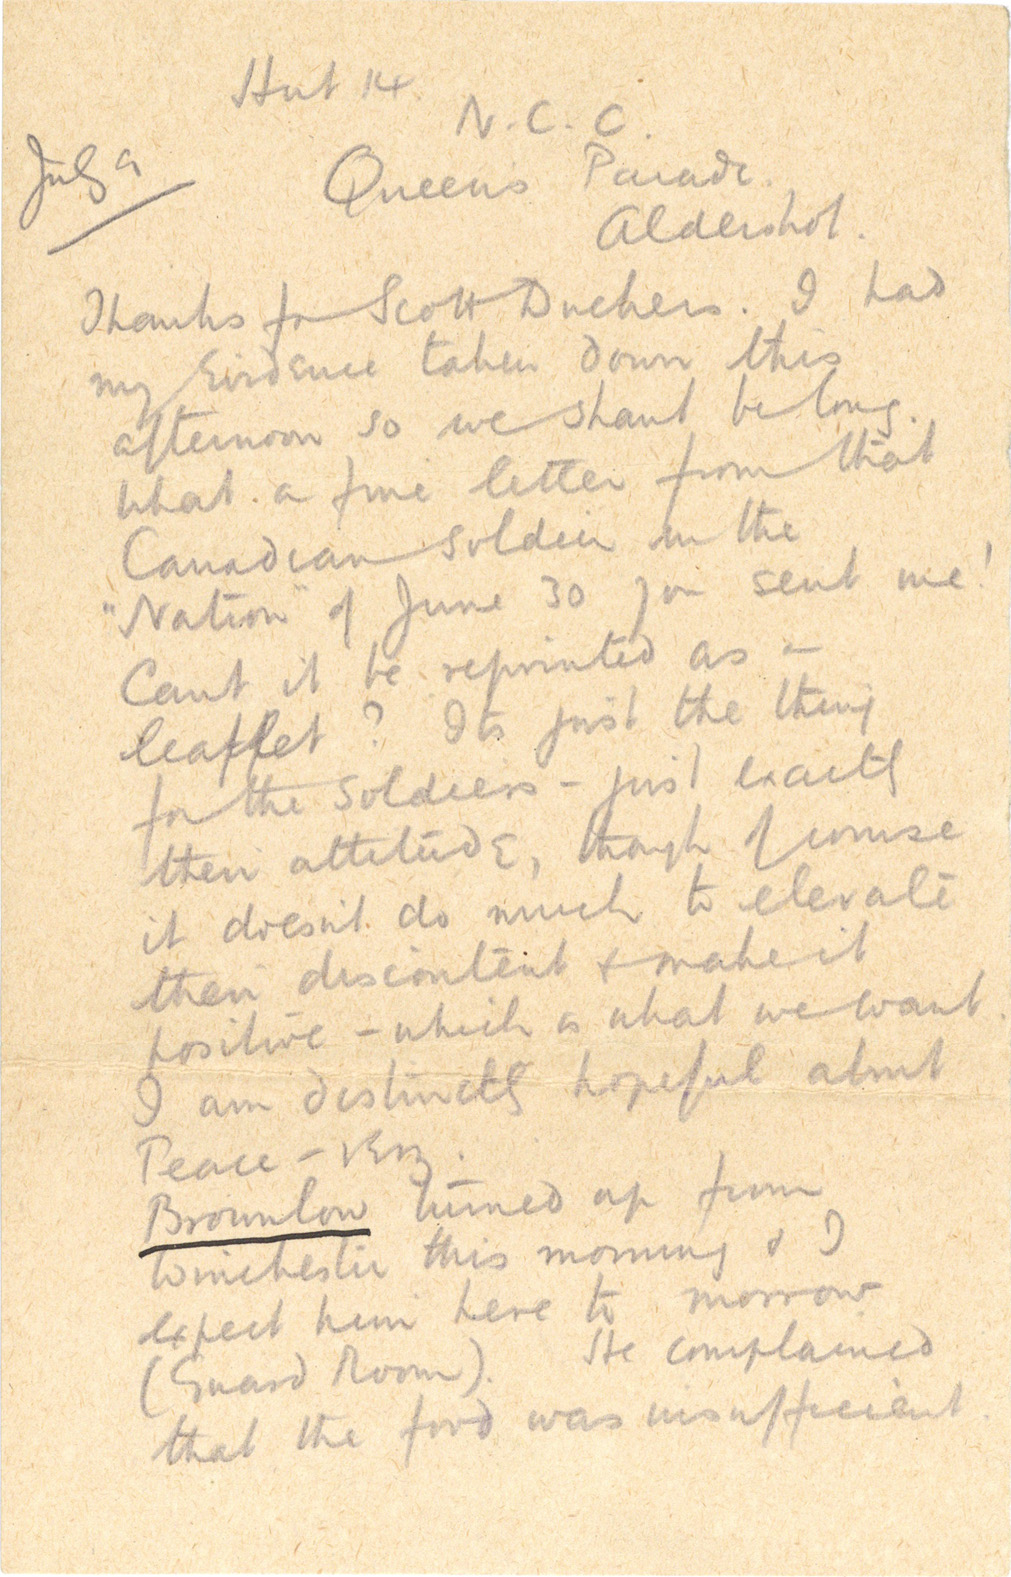 Hut 14.
N. C. C.
July 9
Queens Parade.
Aldershot.
Thanks for Scott Duckers. I had
my Evidence taken down this
afternoon so we shant be long.
What a fine letter from that
Canadian soldier in the
"Nation" of June 30 you sent me!
Cant it be reprinted as a
leaflet? Its just the thing
for the soldiers - just exactly
their attitude, though of course
it doesn't do much to elevate
their discontent & make it
positive - which is what we want.
I am distinctly hopeful about
Peace - very.
Brownlow turned up from
Winchester this morning & I
expect him here to morrow
(Guard Room). He complained
that the food was insufficient.